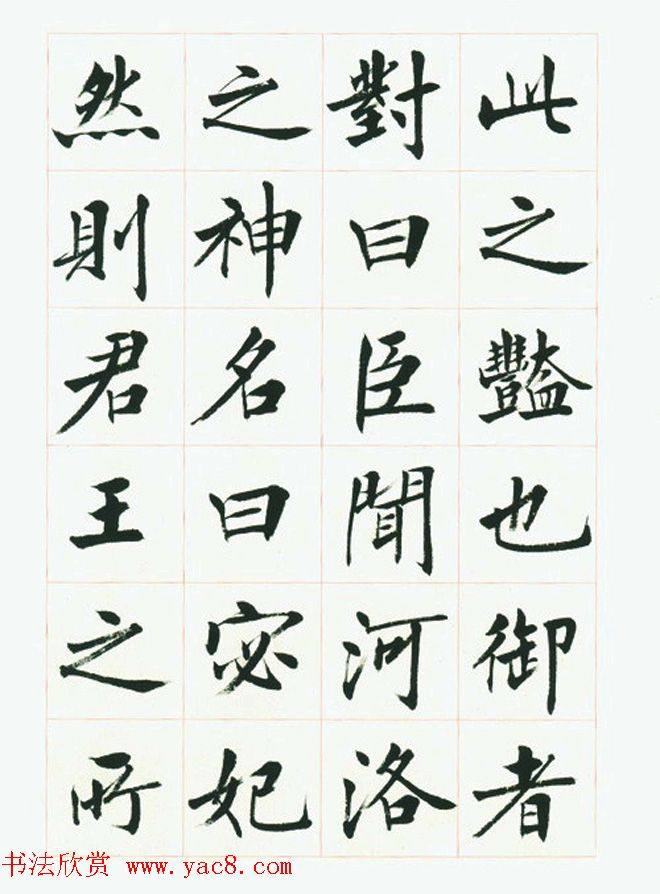 此之豔也御者
對曰臣聞河洛
之神名曰宓妃
然則君王之所
书法欣赏 www.yac8.com